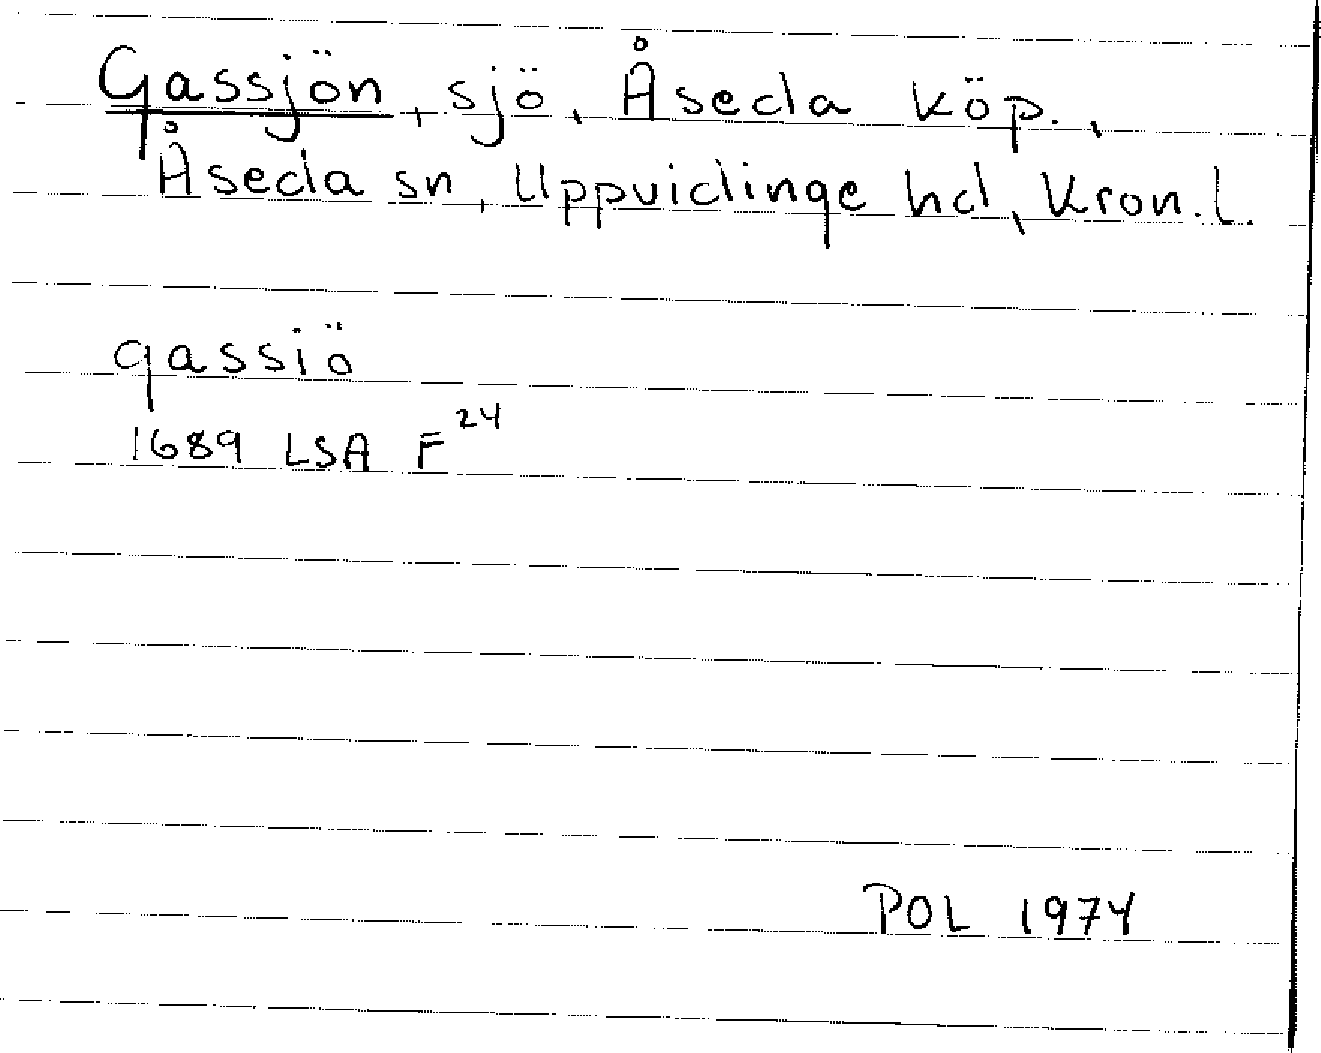 Gassjön, sjö, Åseda köp.,
Åseda sn, Uppvidinge hd, Kron. l.
gassiö
1689 LSA F 24
POL 1974